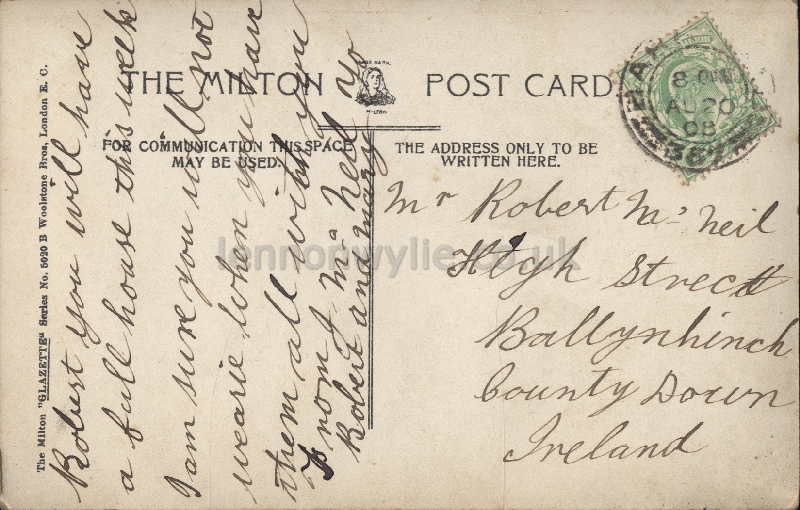 THE MILTON POST CARD
TRADE MARK.
MILTON
FOR COMMUNICATION THIS SPACE
MAY BE USED.
THE ADDRESS ONLY TO BE
WRITTEN HERE.
The Milton "GLAZETTE" Series No. 5020 B Woolstone Bros, London E. C.
Robert you will have
a full house this week
I am sure you will not
wearie when you have
them all with you
From J Mc Neil
Robert and Mary
Mr Robert Mc Neil
High Street
Ballynhinch
County Down
Ireland
AU 20
08
lennonwylie.co.uk